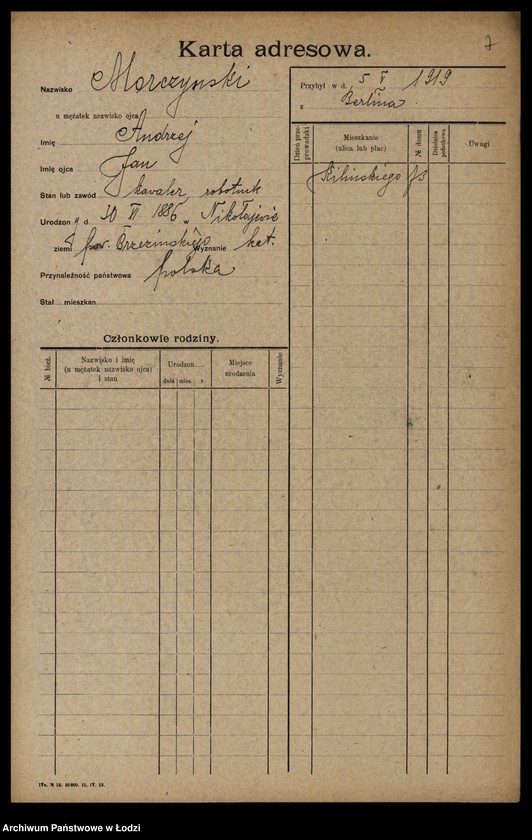 7
Karta adresowa.
Nazwisko Morczynski
u mężatek nazwisko ojca
Imię Andrzej
Imię ojca Jan
Stan lub zawód kawaler robotnik
Urodzon " d. 30 VI 1886 w Nikołajewie
ziemi pow. Brzezinskiego Wyznanie kat.
Przynależność państwowa polska
Stał. mieszkan
Członkowie rodziny.
№ bież.
Nazwisko i imię
(u mężatek nazwisko ojca)
i stan
Urodzon
dnia mies. r.
Miejsce
urodzenia
Wyznanie
Przybył w d. 5 V 1919
z Berlina.
Dzień prze-
prowadzki
Mieszkanie
(ulica lub plac)
№ domu
Dzielnica
policyjna
Uwagi
Kilinskiego
Archiwum Państwowe w Łodzi